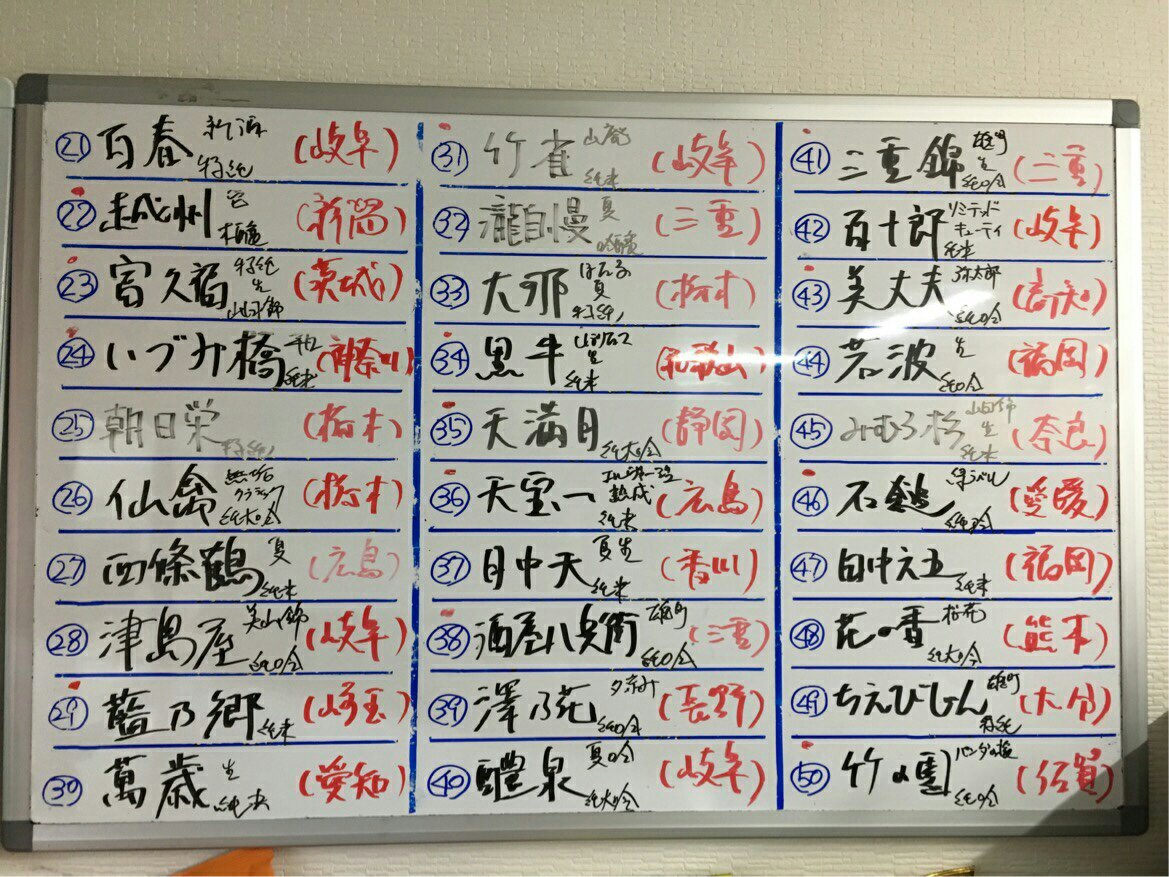 ㉑ 百春 新酒 特純 (岐阜)
㉒ 越州 (新潟)
㉓ 富久福 特純 生 山田錦 (茨城)
㉔ いづみ橋 純米 (神奈川)
㉕ 朝日栄 特純 (栃木)
㉖ 仙禽 無垢 クラシック 純大吟 (栃木)
㉗ 西條鶴 夏 純米 (広島)
㉘ 津島屋 美山錦 純吟 (岐阜)
㉙ 藍乃郷 純米 (埼玉)
㉚ 萬歳 生 純米 (愛知)
㉛ 竹雀 山廃 純米 (岐阜)
㉜ 瀧自慢 夏 吟醸 (三重)
㉝ 大那 夏 特純 (栃木)
㉞ 黒牛 生 純米 (和歌山)
㉟ 天満月 純大吟 (静岡)
㊱ 天宝一 熟成 純米 (広島)
㊲ 月中天 夏生 純米 (香川)
㊳ 酒屋八兵衛 雄町 純吟 (三重)
㊴ 澤乃花 夕涼み 純吟 (長野)
㊵ 醴泉 夏吟 純大吟 (岐阜)
㊶ 三重錦 雄町 生 純吟 (三重)
㊷ 百十郎 リミテッド キューティ 純米 (岐阜)
㊸ 美丈夫 弥太郎 純吟 (高知)
㊹ 若波 生 純吟 (福岡)
㊺ みむろ杉 山田錦 生 純米 (奈良)
㊻ 石鎚 緑ラベル 純吟 (愛媛)
㊼ 田中六五 純米 (福岡)
㊽ 花の香 桜花 純大吟 (熊本)
㊾ ちえびじん 雄町 特純 (大分)
㊿ 竹の園 パンダの 純吟 (佐賀)